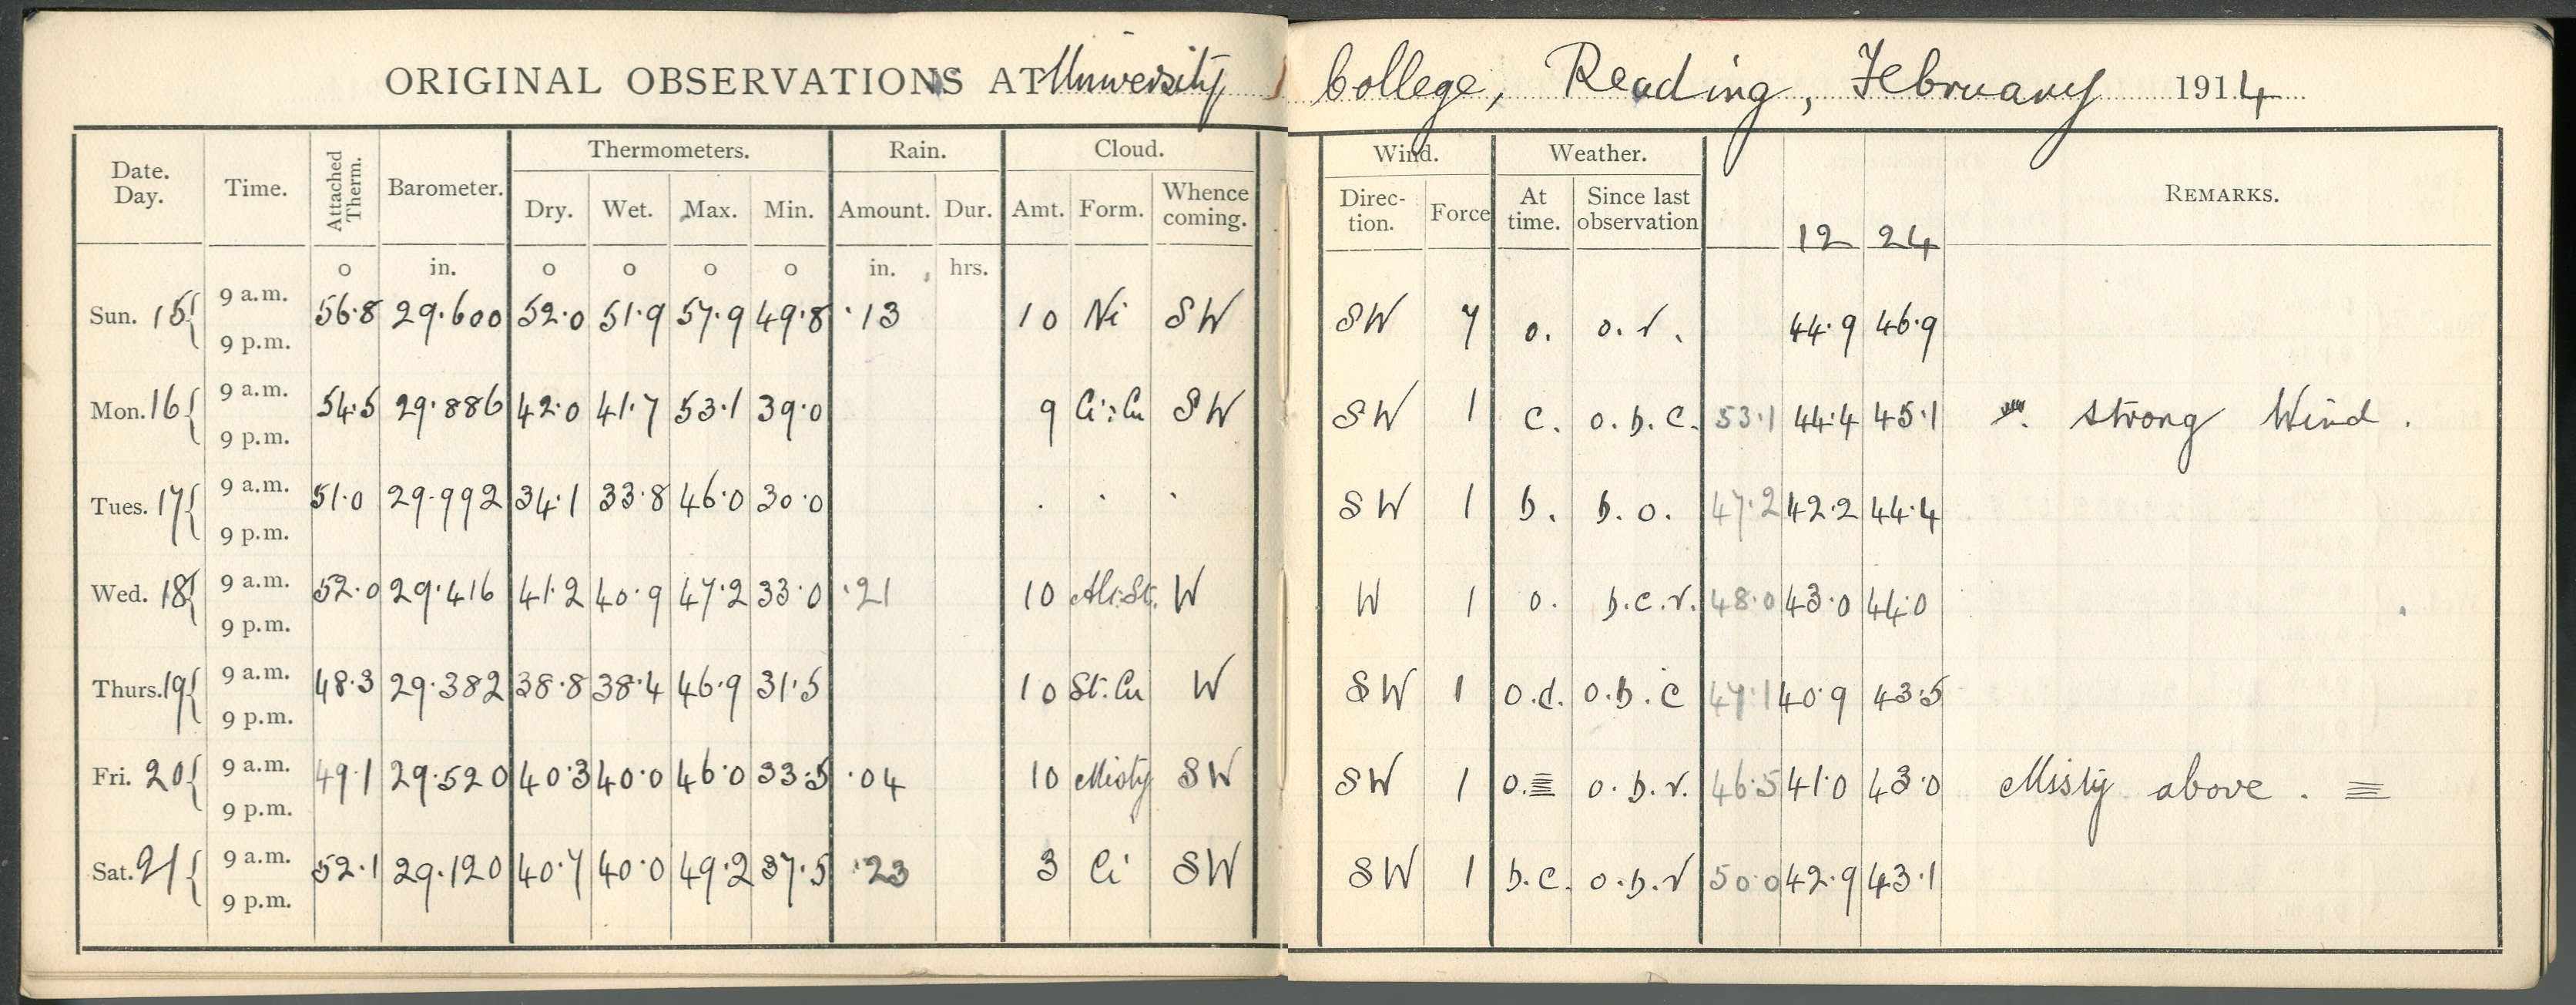 ORIGINAL OBSERVATIONS AT University College, Reading, February 1914
Date. Day. Time. Attached Therm. Barometer. Thermometers. Rain. Cloud. Wind. Weather. REMARKS.
Dry. Wet. Max. Min. Amount. Dur. Amt. Form. Whence coming. Direc-tion. Force At time. Since last observation 12 24
o in. o o o o in. hrs.
Sun. 15 { 9 a.m. 56.8 29.600 52.0 51.9 57.9 49.8 .13 10 Ni SW SW 7 o. o.r. 44.9 46.9
9 p.m.
Mon. 16 { 9 a.m. 54.5 29.886 42.0 41.7 53.1 39.0 9 Ci:Cu SW SW 1 c. o.b.c. 53.1 44.4 45.1 strong Wind.
9 p.m.
Tues. 17 { 9 a.m. 51.0 29.992 34.1 33.8 46.0 30.0 . . . SW 1 b. b.o. 47.2 42.2 44.4
9 p.m.
Wed. 18 { 9 a.m. 52.0 29.416 41.2 40.9 47.2 33.0 .21 10 Alt:St. W W 1 o. b.c.r. 48.0 43.0 44.0
9 p.m.
Thurs. 19 { 9 a.m. 48.3 29.382 38.8 38.4 46.9 31.5 10 St:Cu W SW 1 o.d. o.b.c 47.1 40.9 43.5
9 p.m.
Fri. 20 { 9 a.m. 49.1 29.520 40.3 40.0 46.0 33.5 .04 10 Misty SW SW 1 o.≡ o.b.r. 46.5 41.0 43.0 Misty above. ≡
9 p.m.
Sat. 21 { 9 a.m. 52.1 29.120 40.7 40.0 49.2 37.5 .23 3 Ci SW SW 1 b.c. o.b.r 50.0 42.9 43.1
9 p.m.